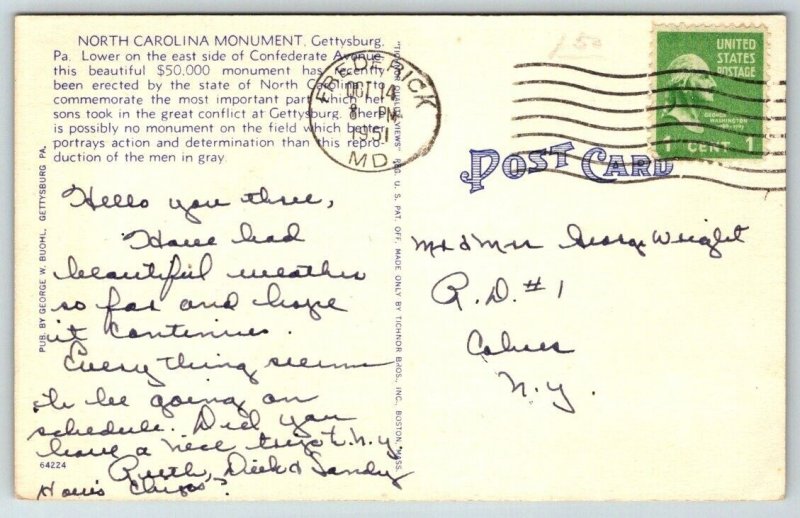 NORTH CAROLINA MONUMENT, Gettysburg,
Pa. Lower on the east side of Confederate Avenue,
this beautiful $50,000 monument has recently
been erected by the state of North Carolina to
commemorate the most important part which her
sons took in the great conflict at Gettysburg. There
is possibly no monument on the field which better
portrays action and determination than this repro-
duction of the men in gray.
PUB. BY GEORGE W. BUOHL, GETTYSBURG PA.
Hello you three,
Have had
beautiful weather
so far and hope
it continues.
Everything seems
to be going on
schedule. Did you
have a nice trip to N.Y.
Ruth, Dick & Sandy
64224
How's
"TICHNOR QUALITY VIEWS" REG. U. S. PAT. OFF. MADE ONLY BY TICHNOR BROS., INC., BOSTON, MASS.
FREDERICK
OCT 14
8 PM
1951
MD.
1.50
UNITED
STATES
POSTAGE
GEORGE
WASHINGTON
1 CENT 1
POST CARD
Mr & Mrs George Wright
R.D. #1
Cohoes
N.Y.